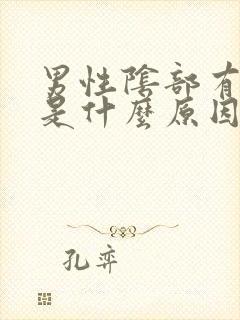 男性陰部有
是什麼原因
孔弈